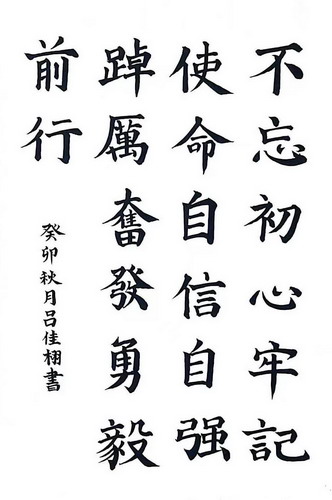 不忘初心牢記
使命自信自强
踔厲奮發勇毅
前行
癸卯秋月吕佳栩書